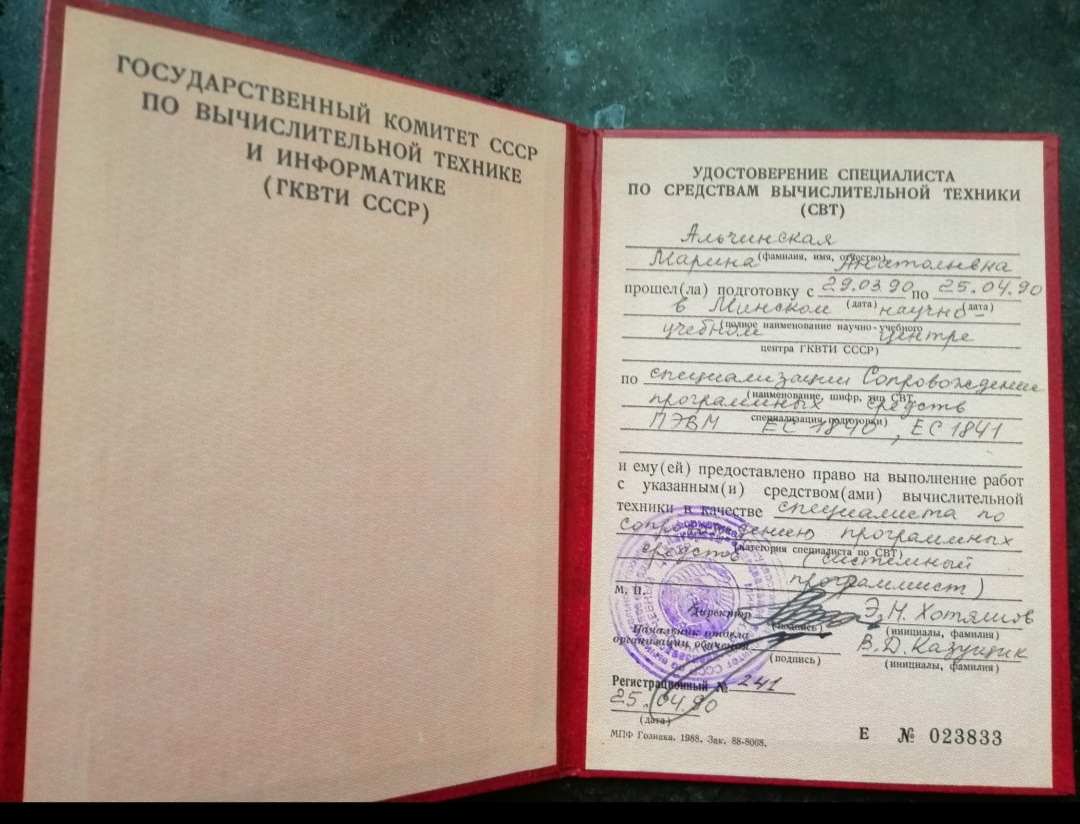 ГОСУДАРСТВЕННЫЙ КОМИТЕТ СССР
ПО ВЫЧИСЛИТЕЛЬНОЙ ТЕХНИКЕ
И ИНФОРМАТИКЕ
(ГКВТИ СССР)
УДОСТОВЕРЕНИЕ СПЕЦИАЛИСТА
ПО СРЕДСТВАМ ВЫЧИСЛИТЕЛЬНОЙ ТЕХНИКИ
(СВТ)
Альчинская
(фамилия, имя, отчество)
Марина Анатольевна
прошел(ла) подготовку с 29.03.90 по 25.04.90
(дата) (дата)
в Минском научно-
(полное наименование научно-учебного
учебном центре
центра ГКВТИ СССР)
по специализации Сопровождение
(наименование, шифр, тип СВТ,
программных средств
специализация подготовки)
ПЭВМ ЕС 1840, ЕС 1841
и ему(ей) предоставлено право на выполнение работ
с указанным(и) средством(ами) вычислительной
техники в качестве специалиста по
сопровождению программных
(категория специалиста по СВТ)
средств (системный
программист)
М. П.
Директор Э.Н. Хотяшов
(подпись) (инициалы, фамилия)
Начальник отдела
организации обучения В.Д. Казущик
(подпись) (инициалы, фамилия)
Регистрационный № 241
25.04.90
(дата)
МПФ Гознака. 1988. Зак. 88-8068.
Е № 023833